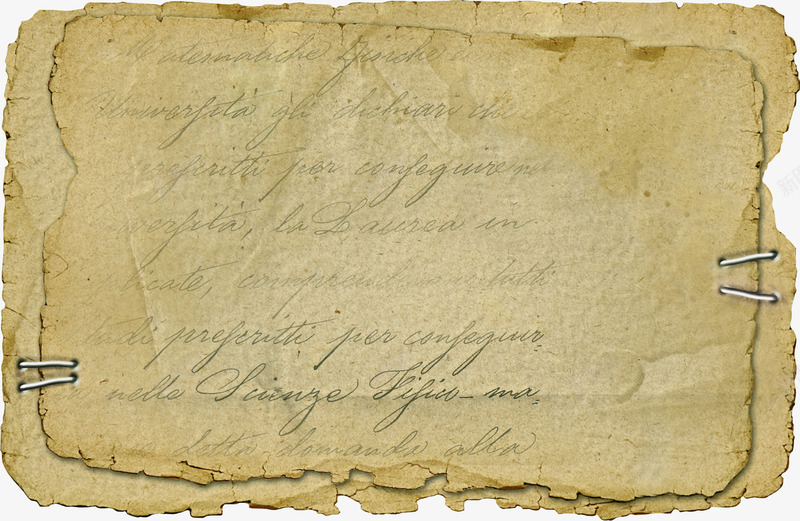 Matematiche fisiche e
Università gli dichiari che
prescritti per conseguire nel
versità, la Laurea in
plicate, comprendono tutti
tudi prescritti per conseguir-
nelle Scienze Fisico-ma-
detta domanda alla